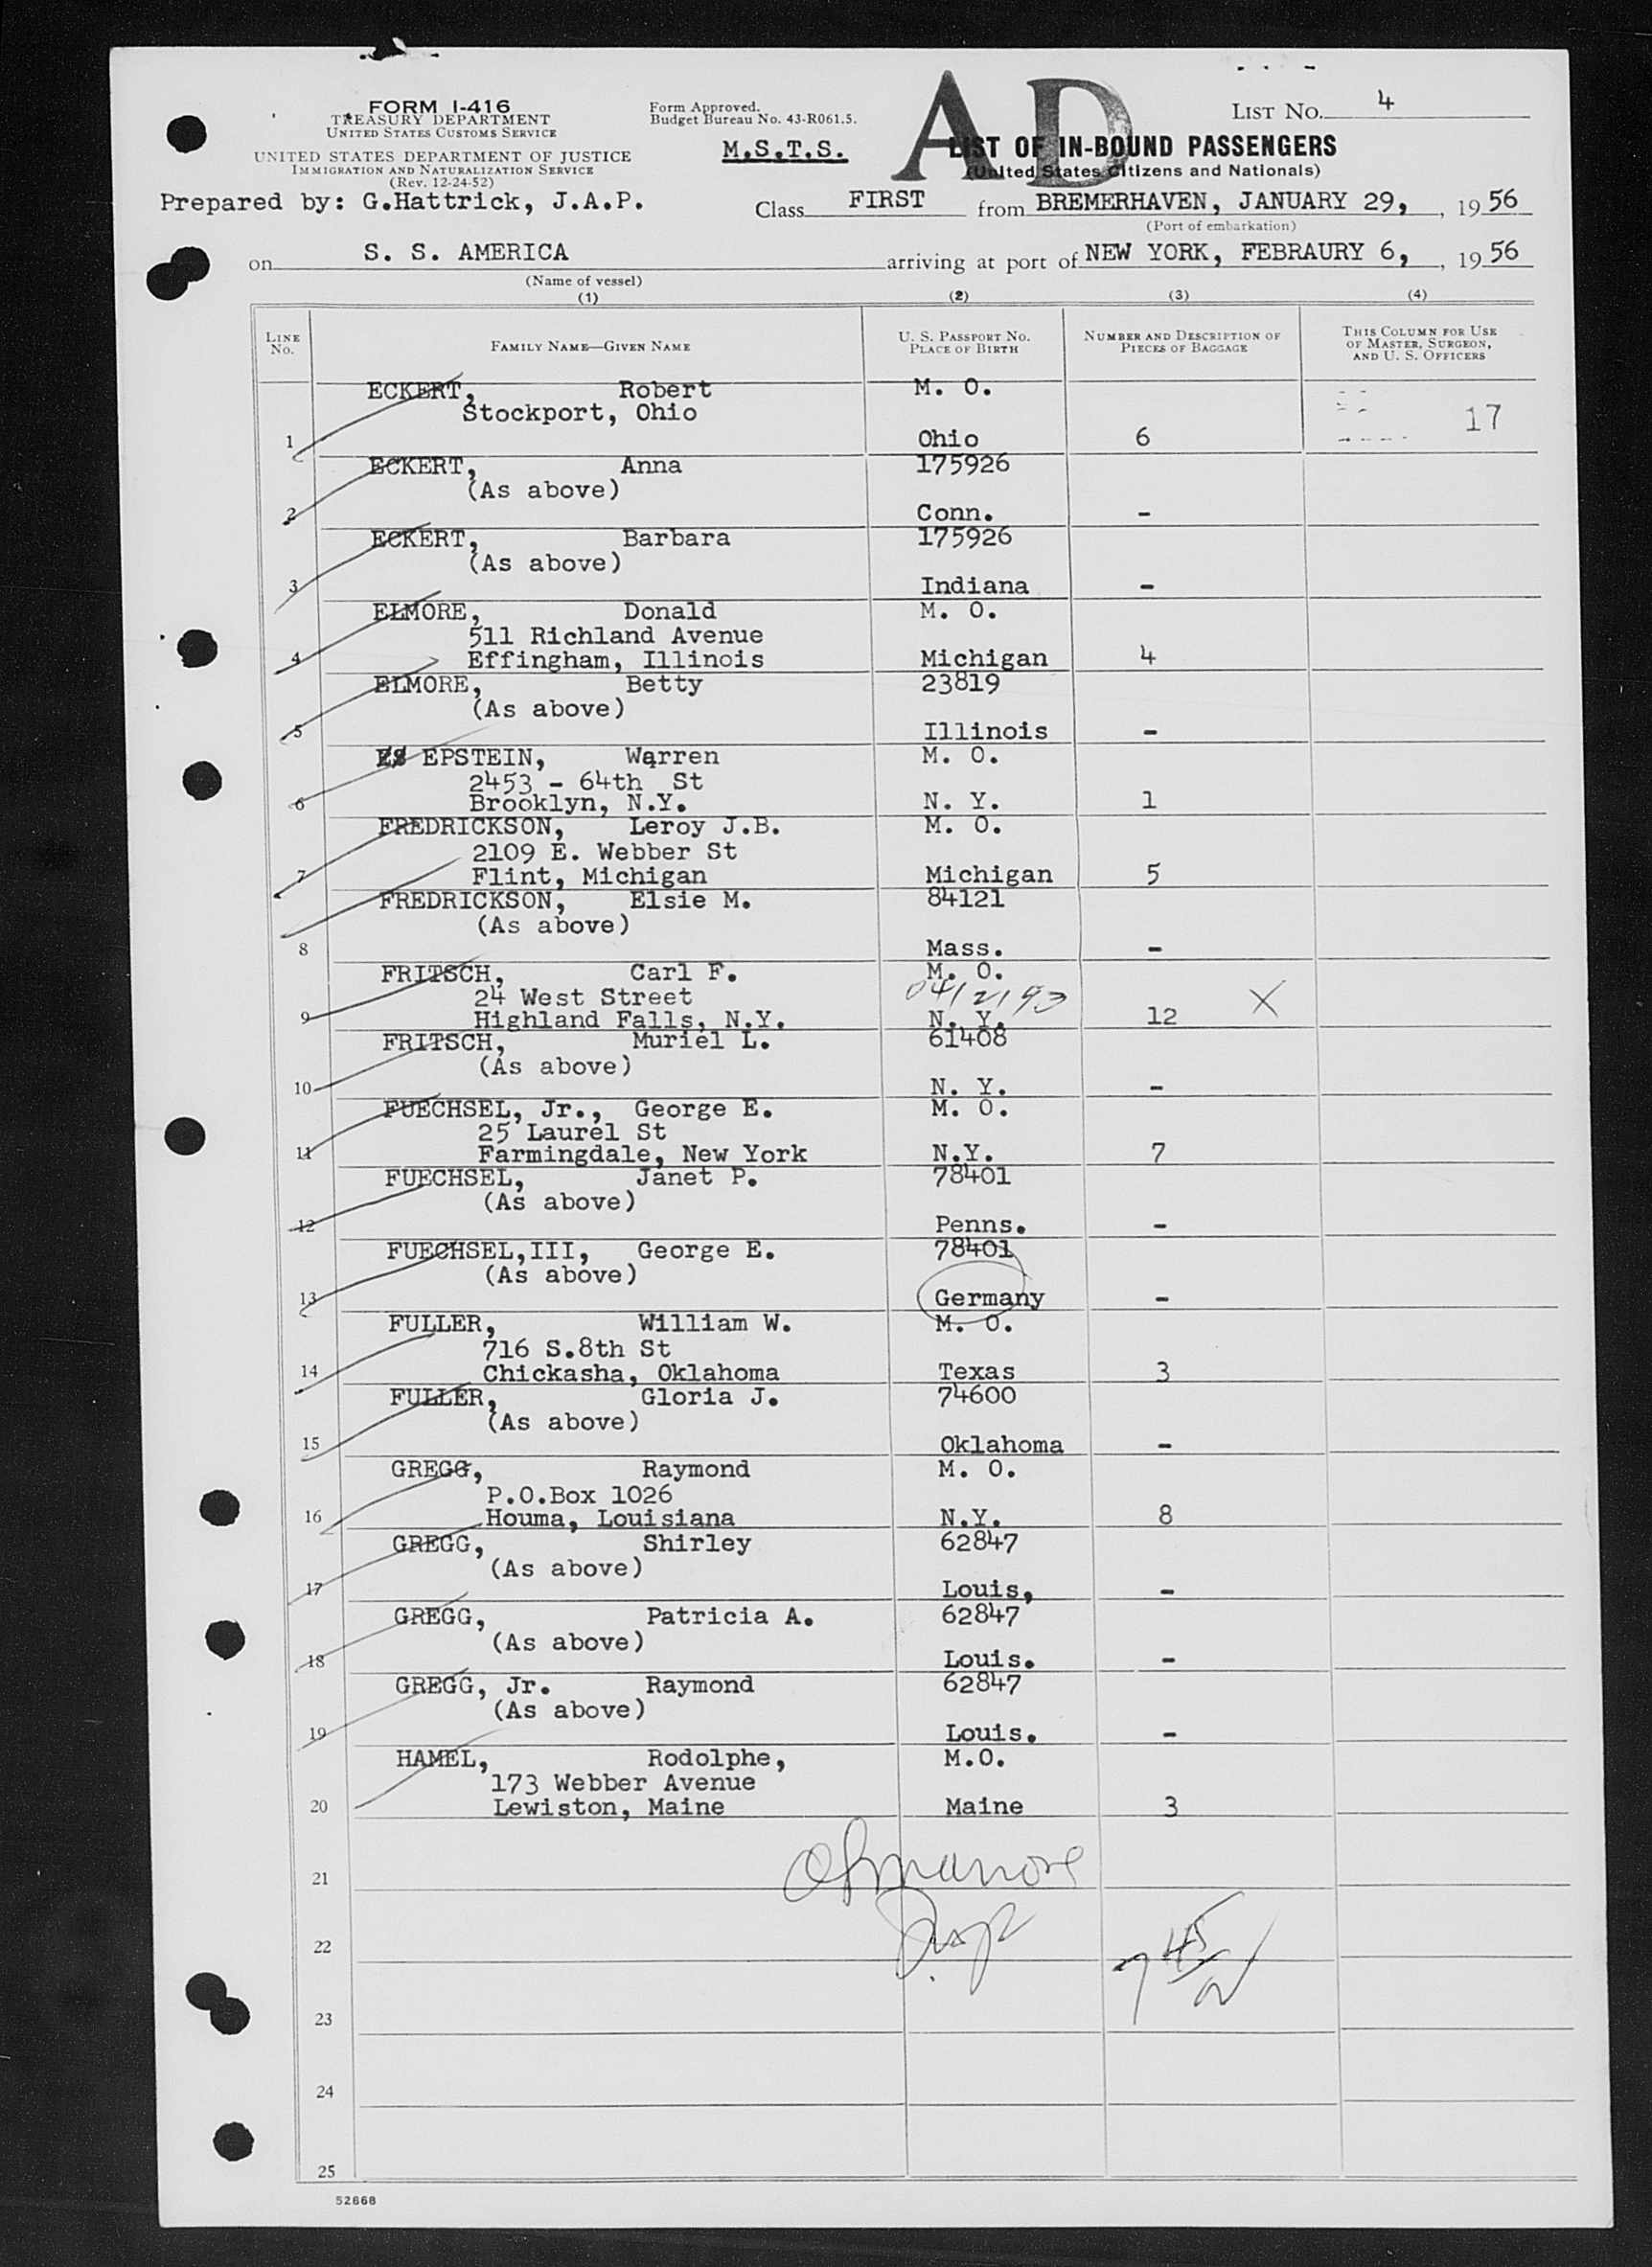 FORM I-416
TREASURY DEPARTMENT
UNITED STATES CUSTOMS SERVICE
UNITED STATES DEPARTMENT OF JUSTICE
IMMIGRATION AND NATURALIZATION SERVICE
(Rev. 12-24-52)
Form Approved.
Budget Bureau No. 43-R061.5.
M.S.T.S.
AD
LIST No. 4
LIST OF IN-BOUND PASSENGERS
(United States Citizens and Nationals)
Prepared by: G.Hattrick, J.A.P.
Class FIRST from BREMERHAVEN, JANUARY 29, , 19 56
(Port of embarkation)
on S. S. AMERICA arriving at port of NEW YORK, FEBRAURY 6, , 19 56
(Name of vessel)
(1) (2) (3) (4)
LINE No. FAMILY NAME—GIVEN NAME U. S. PASSPORT No. PLACE OF BIRTH NUMBER AND DESCRIPTION OF PIECES OF BAGGAGE THIS COLUMN FOR USE OF MASTER, SURGEON, AND U. S. OFFICERS
ECKERT, Robert M. O.
Stockport, Ohio 17
1 Ohio 6
ECKERT, Anna 175926
(As above)
2 Conn. -
ECKERT, Barbara 175926
(As above)
3 Indiana -
ELMORE, Donald M. O.
511 Richland Avenue
4 Effingham, Illinois Michigan 4
ELMORE, Betty 23819
(As above)
5 Illinois -
EPSTEIN, Warren M. O.
2453 - 64th St
6 Brooklyn, N.Y. N. Y. 1
FREDRICKSON, Leroy J.B. M. O.
2109 E. Webber St
7 Flint, Michigan Michigan 5
FREDRICKSON, Elsie M. 84121
(As above)
8 Mass. -
FRITSCH, Carl F. M. O.
24 West Street 0412193 X
9 Highland Falls, N.Y. N. Y. 12
FRITSCH, Muriel L. 61408
(As above)
10 N. Y. -
FUECHSEL, Jr., George E. M. O.
25 Laurel St
11 Farmingdale, New York N.Y. 7
FUECHSEL, Janet P. 78401
(As above)
12 Penns. -
FUECHSEL,III, George E. 78401
(As above)
13 Germany -
FULLER, William W. M. O.
716 S.8th St
14 Chickasha, Oklahoma Texas 3
FULLER, Gloria J. 74600
(As above)
15 Oklahoma -
GREGG, Raymond M. O.
P.O.Box 1026
16 Houma, Louisiana N.Y. 8
GREGG, Shirley 62847
(As above)
17 Louis, -
GREGG, Patricia A. 62847
(As above)
18 Louis. -
GREGG, Jr. Raymond 62847
(As above)
19 Louis. -
HAMEL, Rodolphe, M.O.
173 Webber Avenue
20 Lewiston, Maine Maine 3
21
22
23
24
25
52668